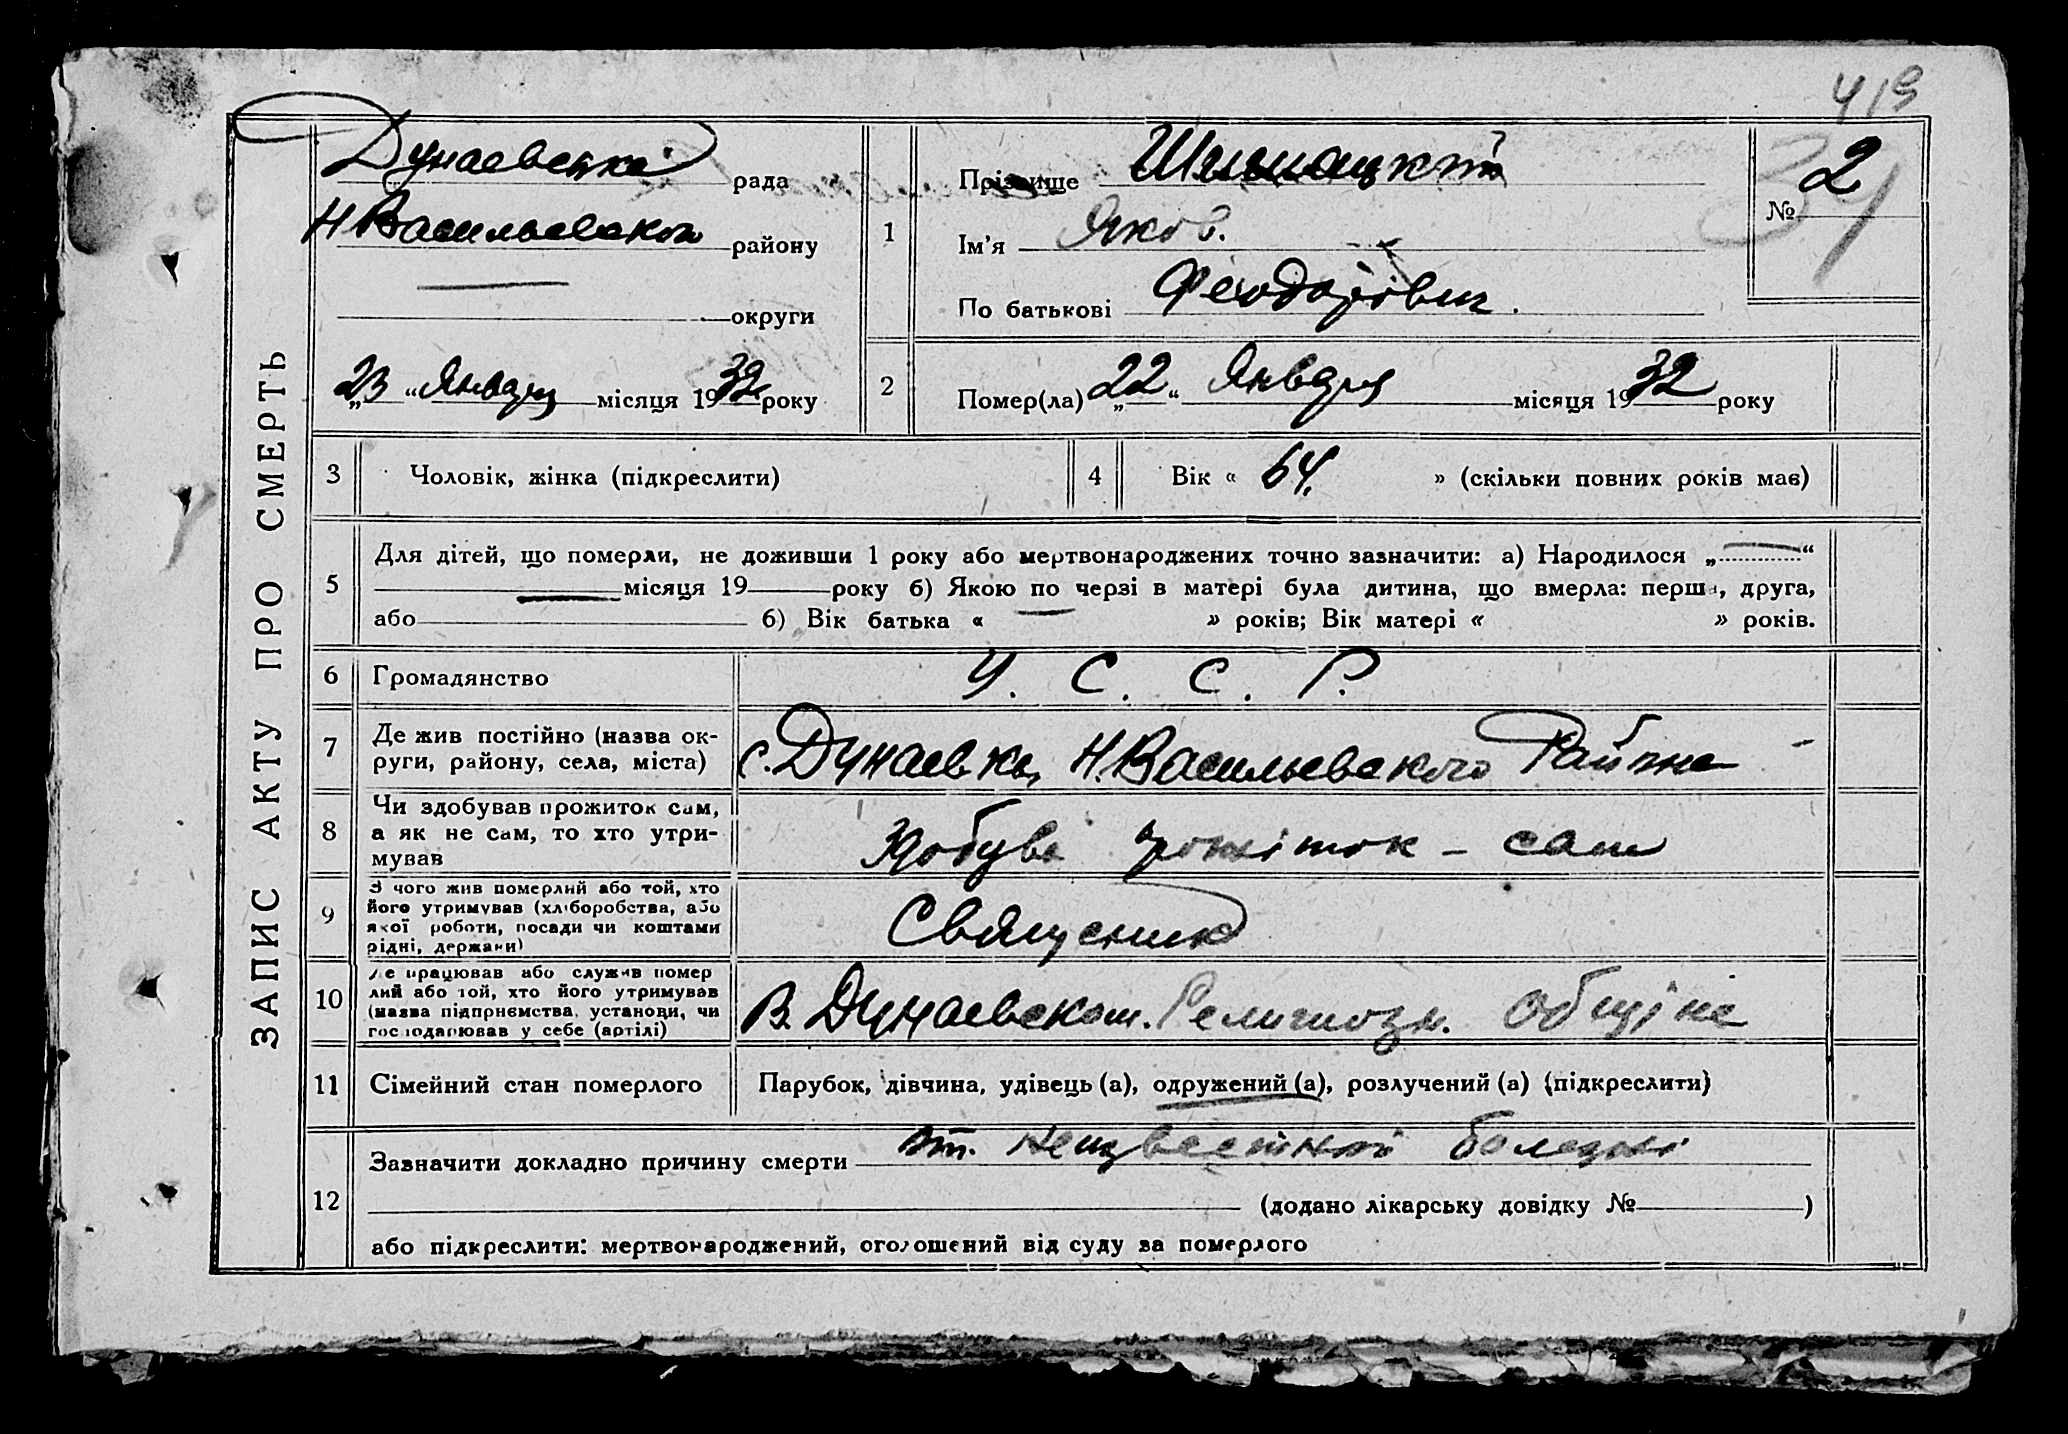 419
ЗАПИС АКТУ ПРО СМЕРТЬ
Дунаевська рада
Н Васильевском району
округи
„23“ Января місяця 1932 року
1
Прізвище
Ім'я Яков.
По батькові Феодорівич.
№ 2
34
2
Помер(ла) „22“ Января місяця 1932 року
3 Чоловік, жінка (підкреслити)
4 Вік « 64. » (скільки повних років має)
5 Для дітей, що померли, не доживши 1 року або мертвонароджених точно зазначити: а) Народилося „ “
місяця 19 року б) Якою по черзі в матері була дитина, що вмерла: перша, друга,
або б) Вік батька « » років; Вік матері « » років.
6 Громадянство У. С. С. Р.
7 Де жив постійно (назва ок-
руги, району, села, міста)
с. Дунаевка, Н.Васильевского Района
8 Чи здобував прожиток сам,
а як не сам, то хто утри-
мував
Здобува прожіток - сам
9 З чого жив померлий або той, хто
його утримував (хліборобства, або
якої роботи, посади чи коштами
рідні, держави)
Священик
10 Де працював або служив помер
лий або той, хто його утримував
(назва підприємства, установи, чи
господарював у себе (артілі)
В. Дунаевском. Религиозн. Общіне
11 Сімейний стан померлого Парубок, дівчина, удівець (а), одружений (а), розлучений (а) (підкреслити)
12 Зазначити докладно причину смерти от. неизвестной болезні
(додано лікарську довідку № )
або підкреслити: мертвонароджений, оголошений від суду за померлого